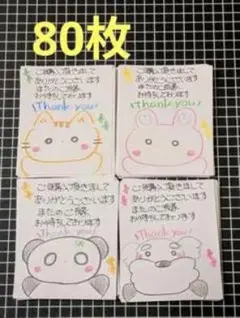 80枚
ご購入頂きまして
ありがとうございます
またのご縁
お待ちしております
Thank you♪
ご購入頂きまして
ありがとうございます
またのご縁
お待ちしております
Thank you♪
ご購入頂きまして
ありがとうございます
またのご縁
お待ちしております
Thank you♪
ご購入頂きまして
ありがとうございます
またのご縁
お待ちしております
Thank you♪